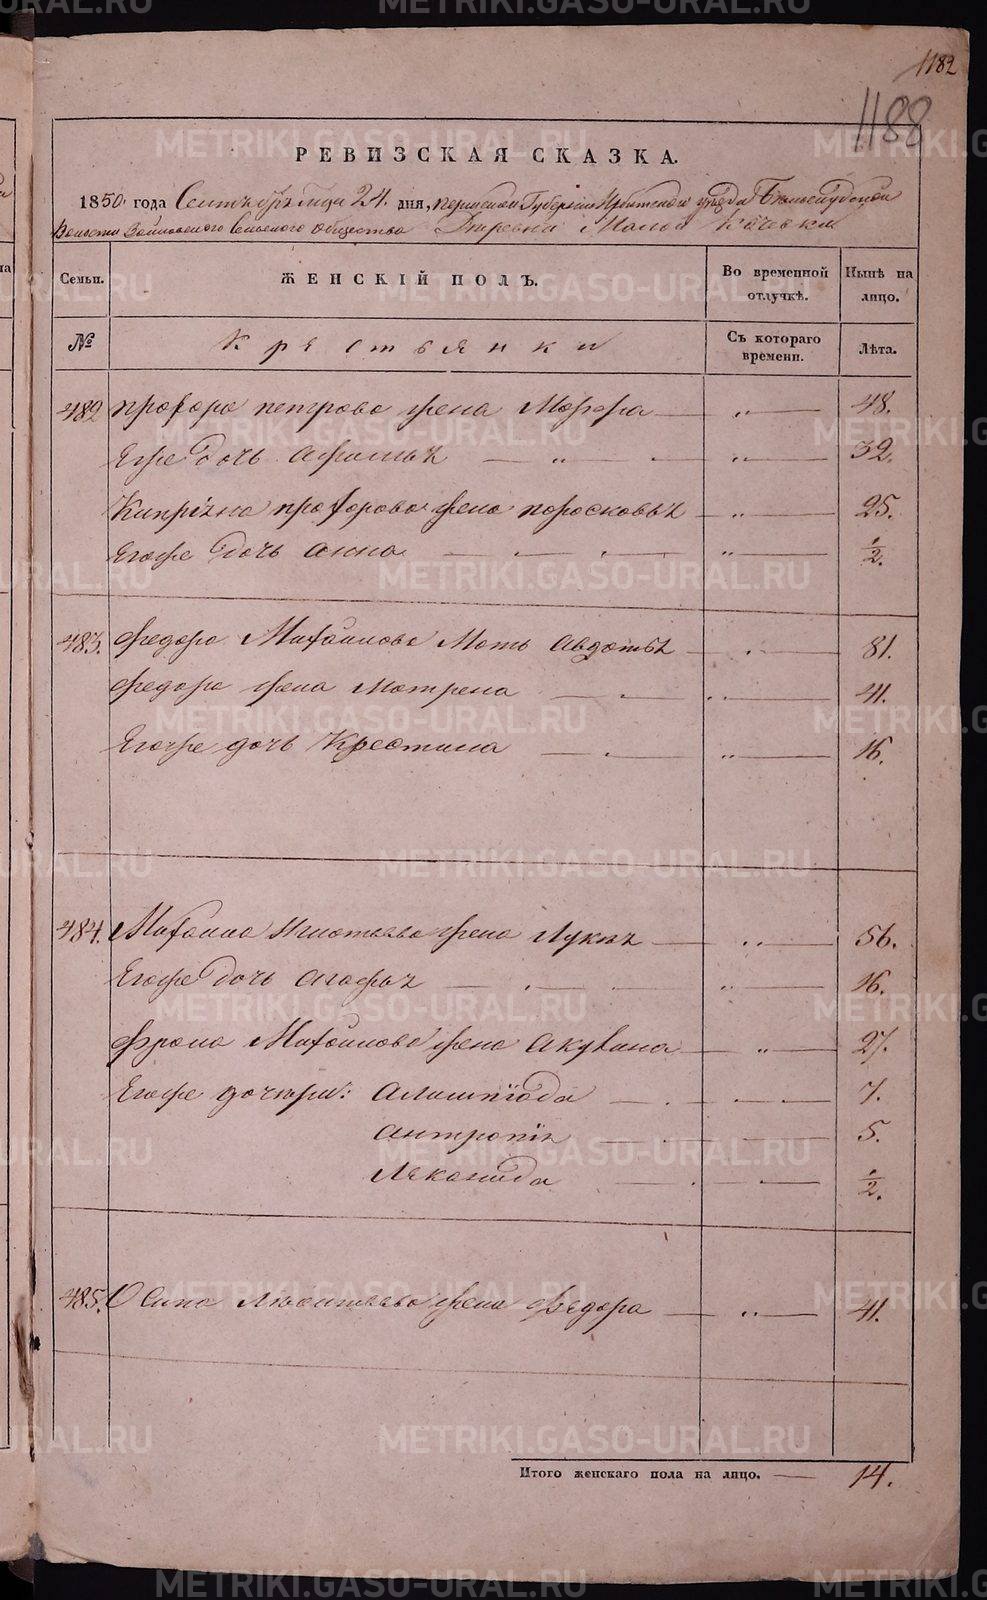 1182
1188
РЕВИЗСКАЯ СКАЗКА.
1850 года Сентября месяца 24 дня, Пермской Губернии Ирбитского уезда Белослудской
Волости Зайковского Сельского Общества Деревни Малой Кочевки
Семьи. ЖЕНСКІЙ ПОЛЪ. Во временной отлучкѣ. Нынѣ на лицо.
№ Крестьянки Съ котораго времени. Лѣта.
482 Прохора петрова жена Марфа — „ — 48.
Егоже дочь Афимья — „ — „ — 32.
Кипріяна прохорова жена поросковья — „ — 25.
Егоже дочь Анна — „ — 1/2.
483. Федора Михайлова Мать Авдотья — 81.
Федора жена Матрена — 41.
Егоже дочь Крестина — „ — 16.
484. Михаила Игнатьева жена Лукья — „ — 56.
Егоже дочь Агафья — „ — 16.
Фрола Михайлова жена Акулина — „ — 27.
Егоже дочери: — 7.
Антропія — 5.
Леканида — 1/2.
485. Осипа жена Федора — „ — 41.
Итого женскаго пола на лицо. — 14.
METRIKI.GASO-URAL.RU